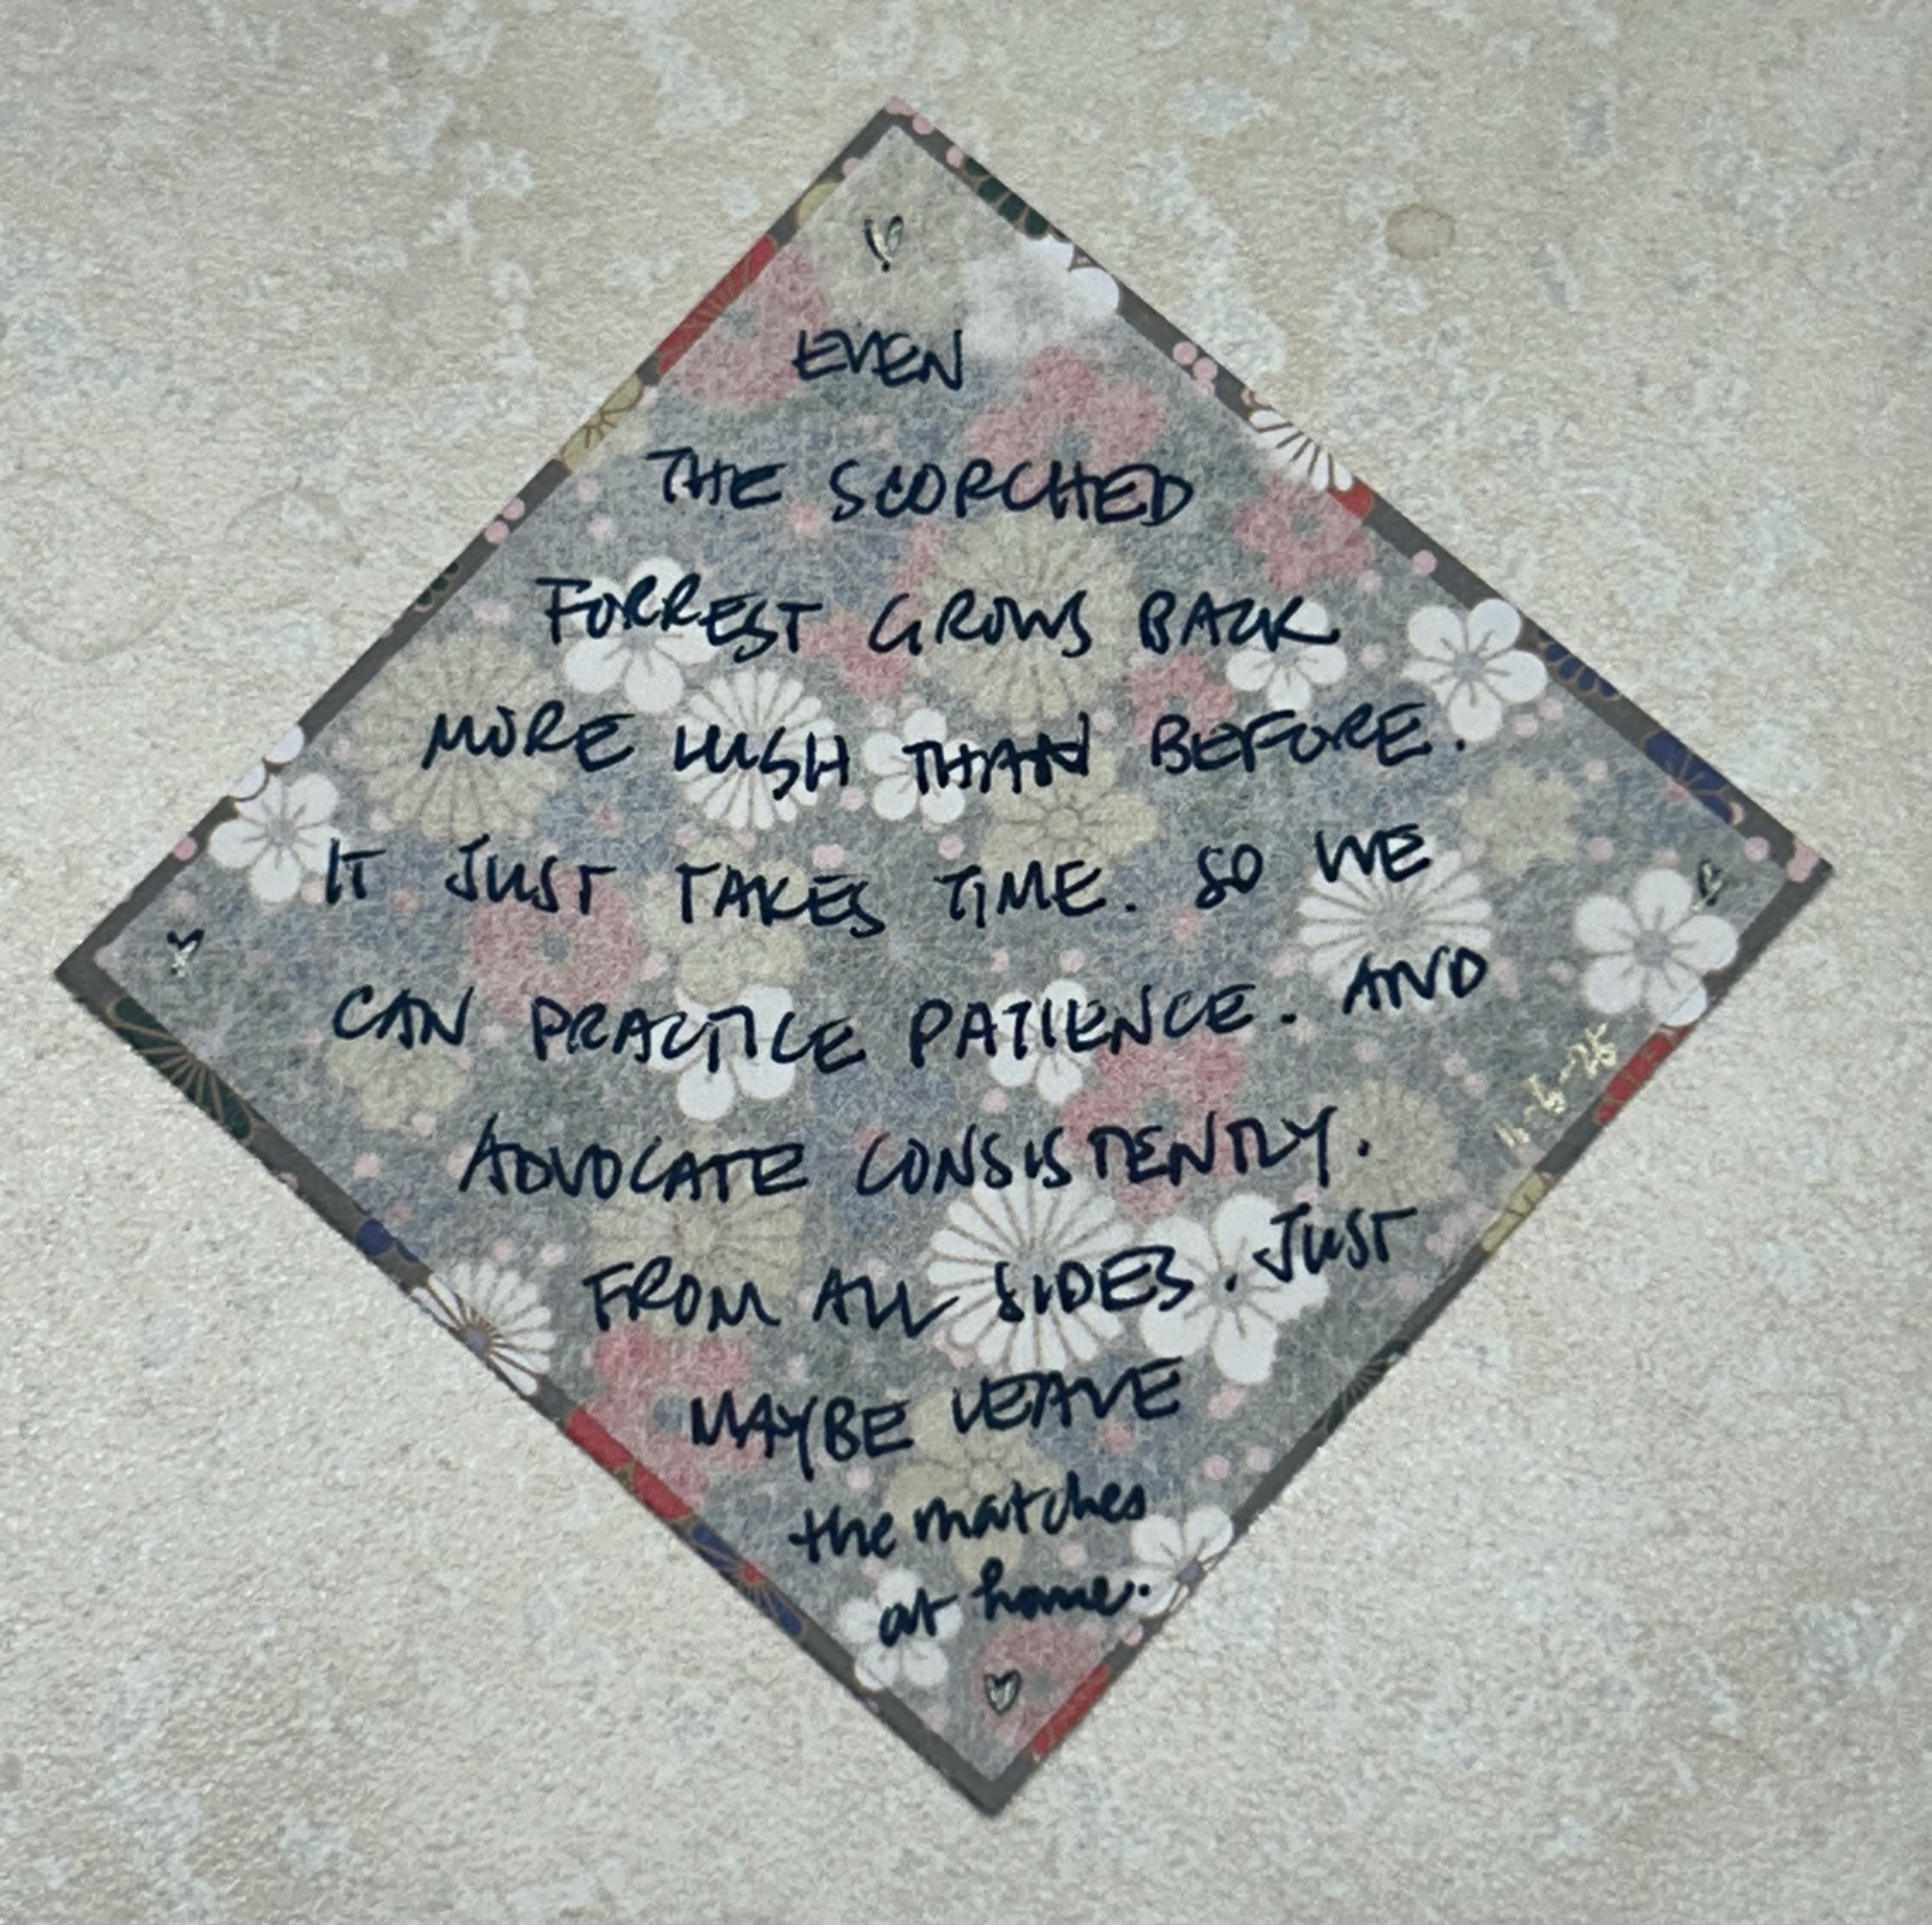 EVEN
THE SCORCHED
FORREST GROWS BACK
MORE LUSH THAN BEFORE.
IT JUST TAKES TIME. SO WE
CAN PRACTICE PATIENCE. AND
ADVOCATE CONSISTENTLY.
FROM ALL SIDES. JUST
MAYBE LEAVE
the matches
at home.